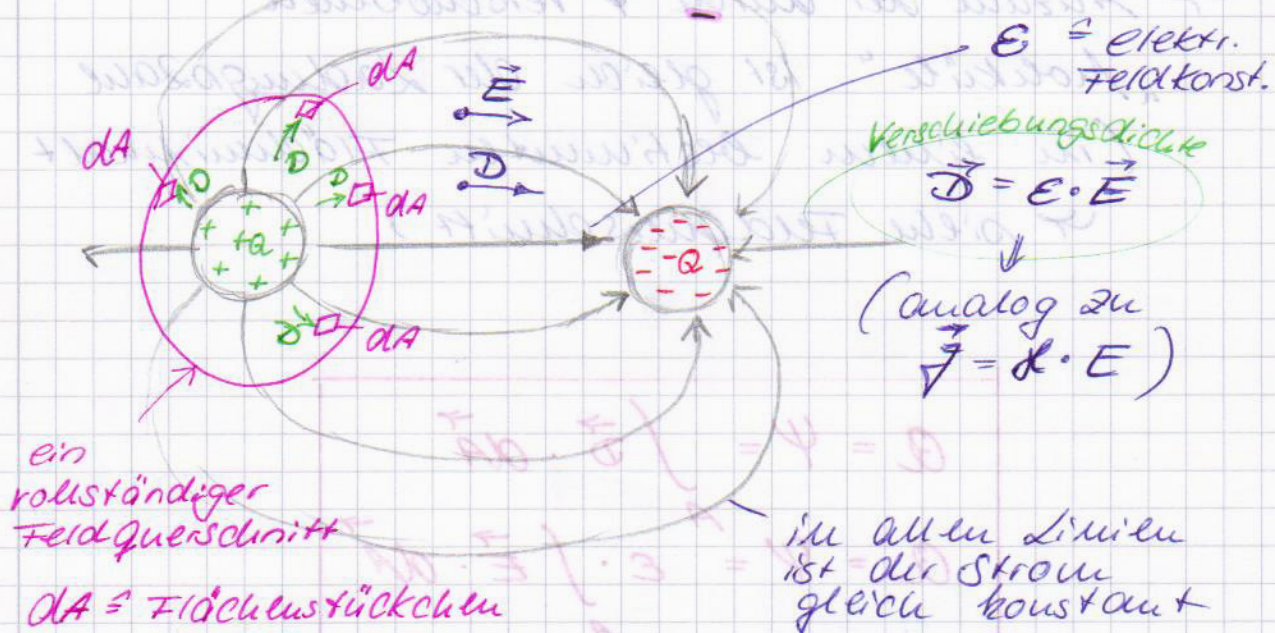 dA
dA
dA
dA
D
D
D
D
E
D
+ + + + + + + + Q
- - - - - - - - Q
ε ≙ elektr.
Feldkonst.
Verschiebungsdichte
D = ε · E
(analog zu
J = ϰ · E)
ein
vollständiger
Feldquerschnitt
dA ≙ Flächenstückchen
in allen Linien
ist der Strom
gleich konstant